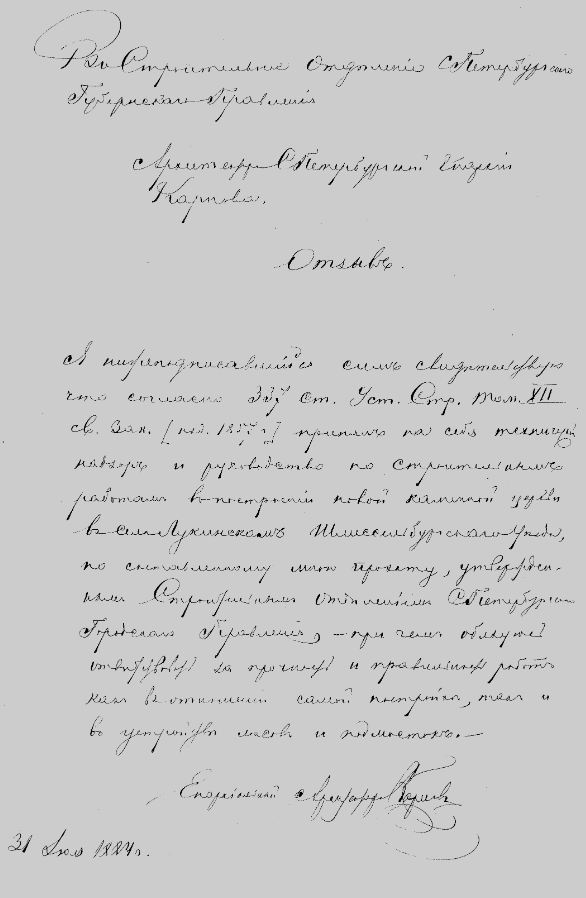 Въ Строительное Отдѣленіе СПетербургскаго
Губернскаго Правленія
Архитектора СПетербургской Епархіи
Карпова.
Отзывъ.
Я нижеподписавшійся симъ свидѣтельствую
что согласно ст. Уст. Стр. Том. XII
св. Зак. [изд. 1857 г.] принялъ на себя техническій
надзоръ и руководство по строительнымъ
работамъ въ построеніи новой каменной церкви
въ селѣ Лукинскомъ Шлиссельбургскаго Уѣзда,
по составленному мною проэкту, утвержден-
ному Строительнымъ Отдѣленіемъ СПетербургскаго
Городскаго Правленія, — при чемъ обязуюсь
отвѣтствовать за прочность и правильность работъ
какъ въ отношеніи самой постройки, такъ и
въ устройствѣ лѣсовъ и подмостокъ. —
Епархіальный Архитекторъ Карповъ
31 1884 г.